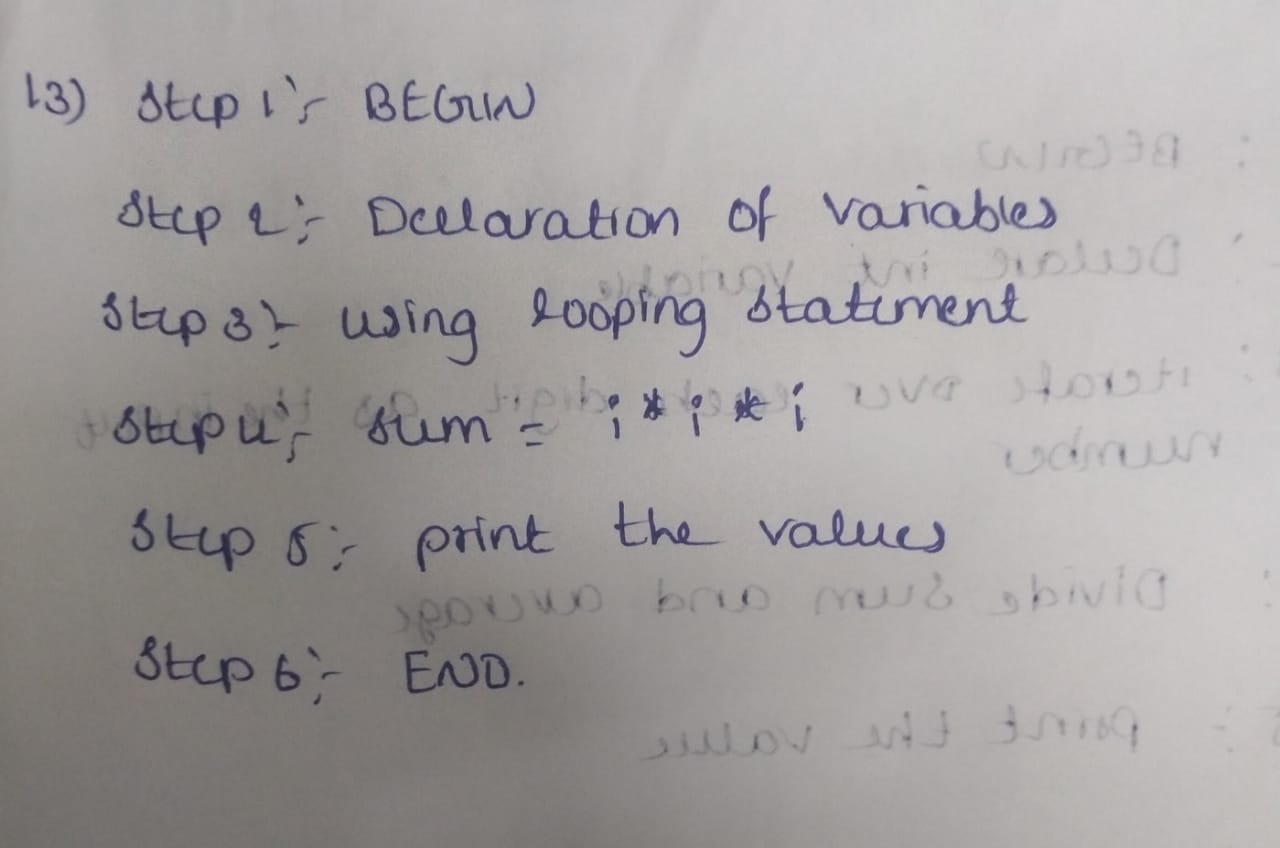 13) Step 1:- BEGIN
Step 2:- Declaration of variables
Step 3:- using looping statement
Step 4:- sum = i * i * i
Step 5:- print the values
Step 6:- END.